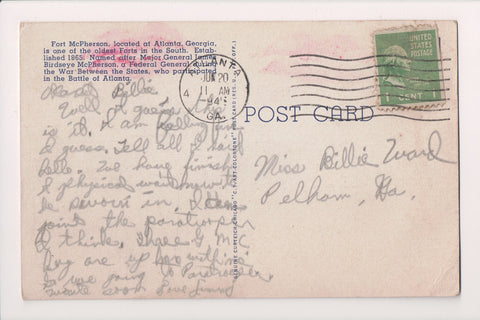 Fort McPherson, located at Atlanta, Georgia,
is one of the oldest Forts in the South. Estab-
lished 1865. Named after Major General James
Birdseye McPherson, a Federal General during
the War Between the States, who participated
in the Battle of Atlanta.
ATLANTA
JUN 20
11 AM
194
GA.
4
UNITED STATES
POSTAGE
1 CENT 1
POST CARD
GENUINE CURTEICH-CHICAGO "C.T. ART-COLORTONE" POST CARD (REG. U.S. PAT. OFF.)
Miss Billie Ward
Pelham, Ga.
Dearest Billie
Well I guess this
is it. I am
I guess. Tell all I said
hello. I've have finish
physical
be sworn in. I
joins the paratroopers
I think. three G.M.C
boy are up here with me
we going to
write soon Love Jimmy